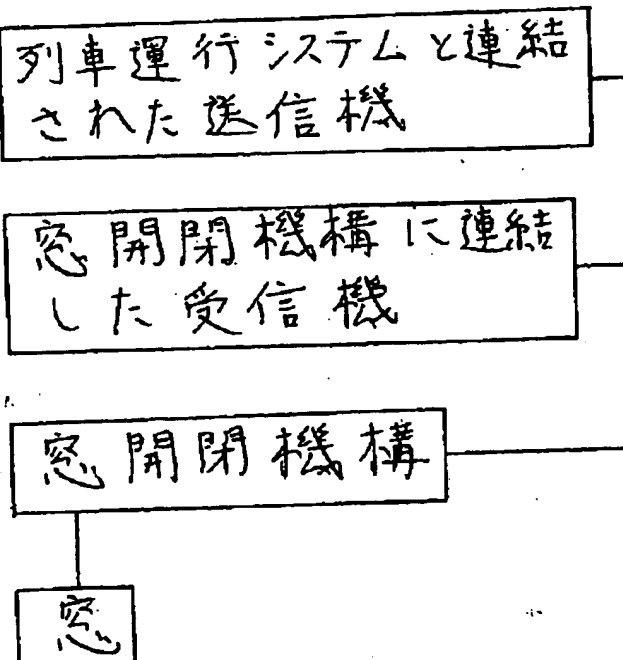 列車運行システムと連結
された送信機
窓開閉機構に連結
した受信機
窓開閉機構
窓